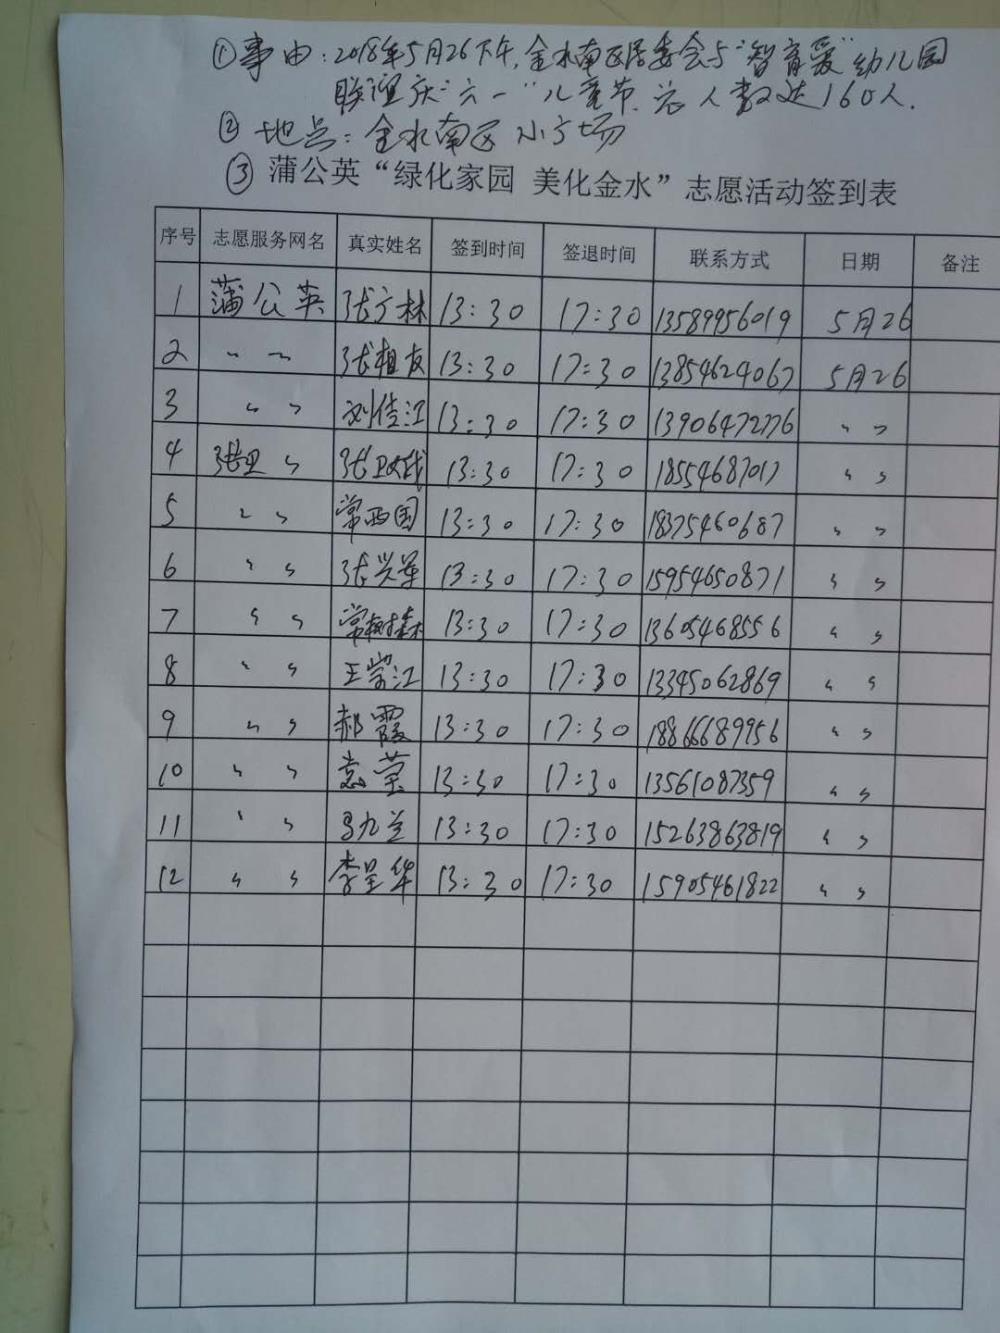 ①事由：2018年5月26下午，金水南区居委会与“智育爱”幼儿园
联谊庆“六一”儿童节，总人数达160人．
②地点：金水南区小广场
③蒲公英“绿化家园 美化金水”志愿活动签到表
序号 志愿服务网名 真实姓名 签到时间 签退时间 联系方式 日期 备注
1 蒲公英 张广林 13:30 17:30 13589956019 5月26
2 〃 〃 张相友 13:30 17:30 13854624067 5月26
3 〃 〃 刘佳江 13:30 17:30 13906472776 〃 〃
4 张卫 〃 13:30 17:30 18554687017 〃 〃
5 〃 〃 常西国 13:30 17:30 18375460687 〃 〃
6 〃 〃 张兴军 13:30 17:30 15954650871 〃 〃
7 〃 〃 常树森 13:30 17:30 13605468556 〃 〃
8 〃 〃 王学江 13:30 17:30 13345062869 〃 〃
9 〃 〃 郝霞 13:30 17:30 18866689956 〃 〃
10 〃 〃 袁莹 13:30 17:30 13561087359 〃 〃
11 〃 〃 马九兰 13:30 17:30 15263863819 〃 〃
12 〃 〃 李呈华 13:30 17:30 15905461822 〃 〃